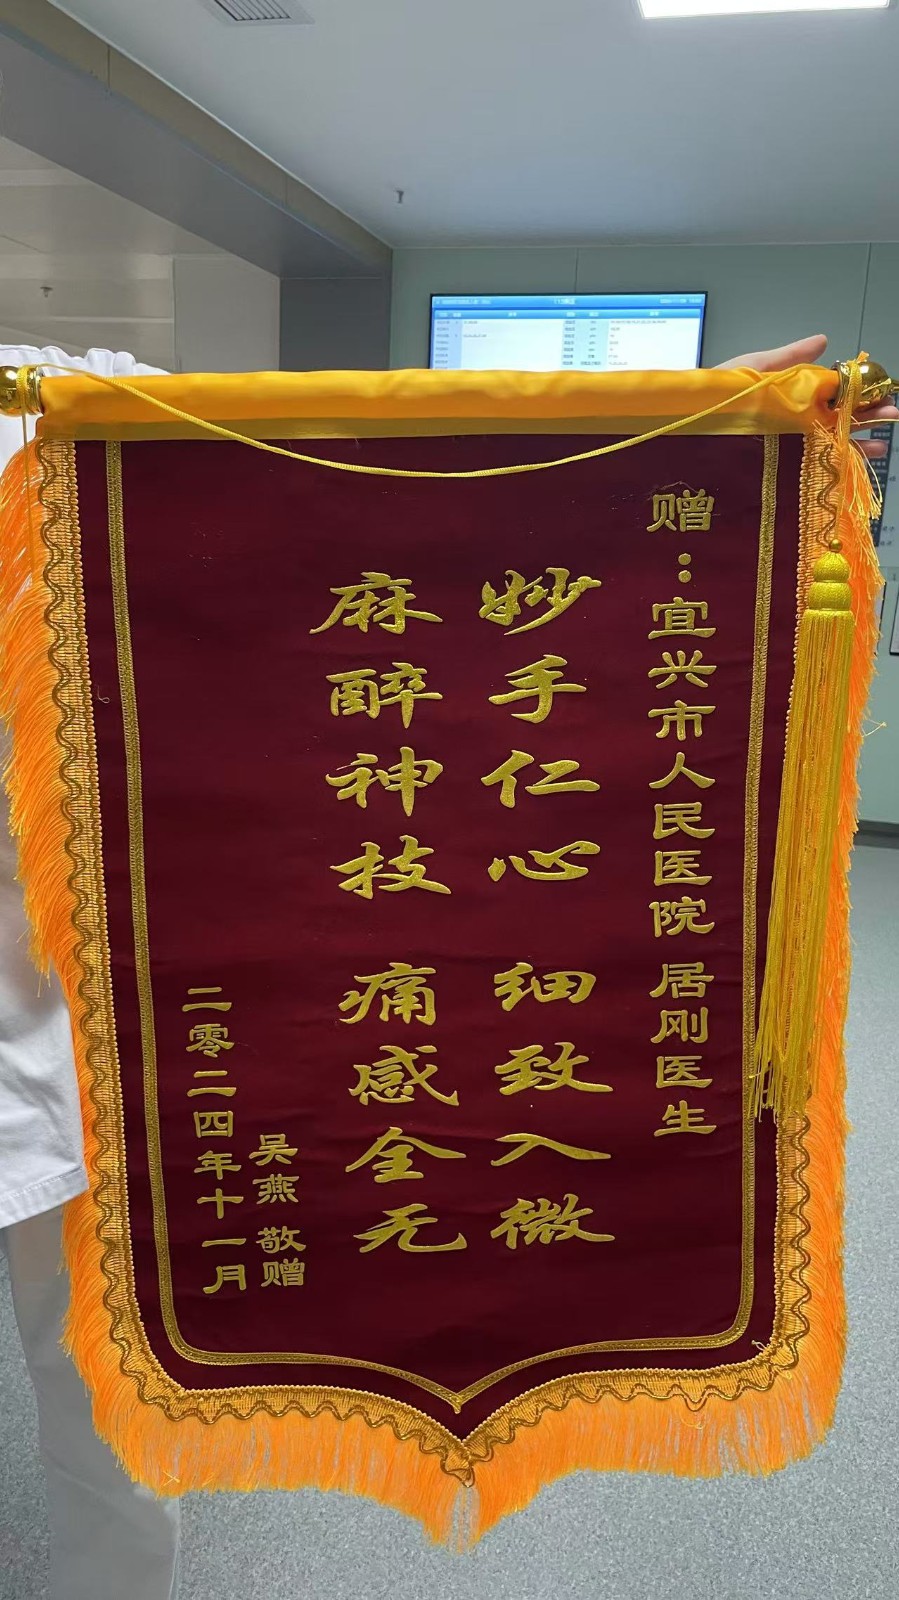 赠：宜兴市人民医院 居刚医生
妙手仁心 细致入微
麻醉神技 痛感全无
吴燕 敬赠
二零二四年十一月